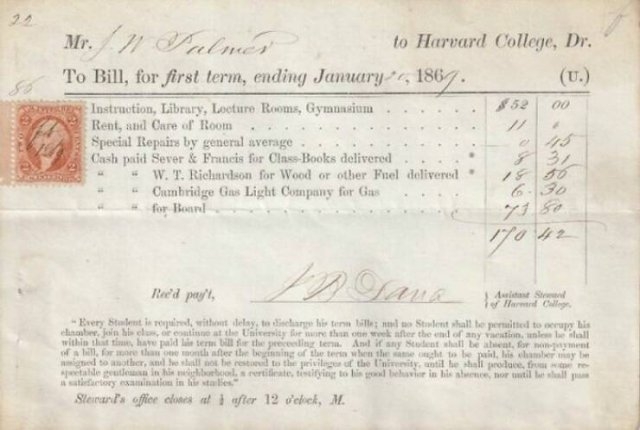 22
Mr. J W Palmer to Harvard College, Dr.
86
To Bill, for first term, ending January 20, 1867. (U.)
Instruction, Library, Lecture Rooms, Gymnasium . . . . . . $52 00
Rent, and Care of Room . . . . . . . . . . . 11 0
Special Repairs by general average . . . . . . . . . 0 45
Cash paid Sever & Francis for Class-Books delivered . . . . * 8 31
" " W. T. Richardson for Wood or other Fuel delivered * 18 56
" " Cambridge Gas Light Company for Gas . . . . . 6 30
" " for Board . . . . . . . . . . . . . 73 80
170 42
Rec'd pay't, J B Dana } Assistant Steward
of Harvard College.
"Every Student is required, without delay, to discharge his term bills; and no Student shall be permitted to occupy his
chamber, join his class, or continue at the University for more than one week after the end of any vacation, unless he shall
within that time, have paid his term bill for the preceding term. And if any Student shall be absent, for non-payment
of a bill, for more than one month after the beginning of the term when the same ought to be paid, his chamber may be
assigned to another, and he shall not be restored to the privileges of the University, until he shall produce, from some re-
spectable gentleman in his neighborhood, a certificate, testifying to his good behavior in his absence, nor until he shall pass
a satisfactory examination in his studies."
Steward's office closes at ½ after 12 o'clock, M.